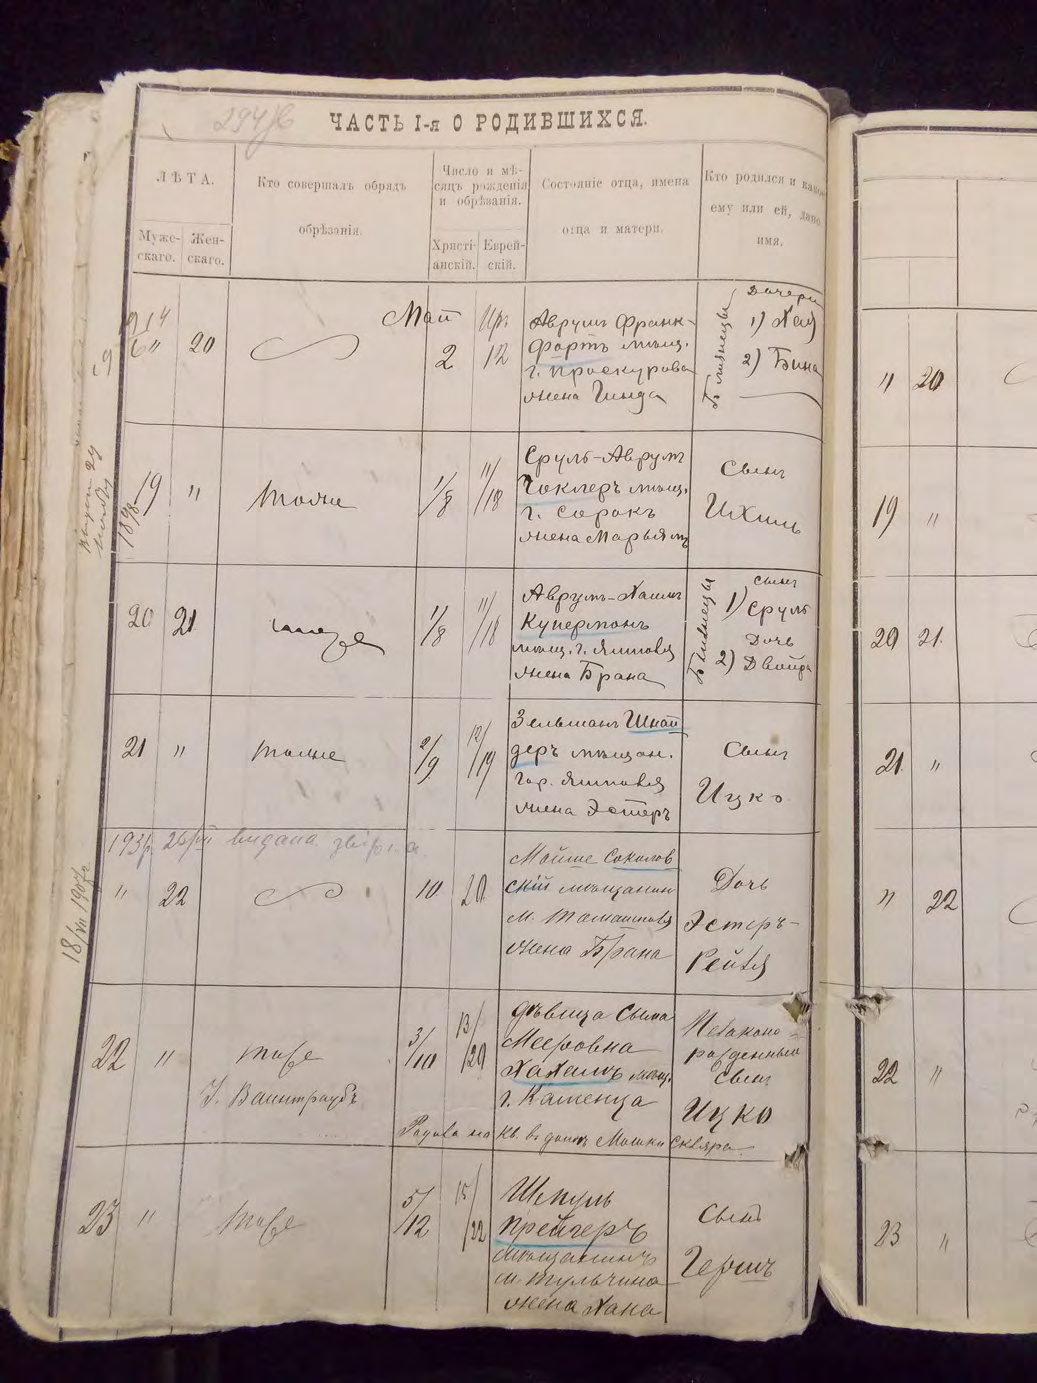 294/6
ЧАСТЬ I-я О РОДИВШИХСЯ.
ЛѢТА.
Муже-
скаго.
Жен-
скаго.
Кто совершалъ обрядъ
обрѣзанія.
Число и мѣ-
сяцъ рожденія
и обрѣзанія.
Христі-
анскій.
Еврей-
скій.
Состояніе отца, имена
отца и матери.
Кто родился и какое
ему или ей, дано
имя.
20
Май
2
Ияръ
12
Аврумъ Франк-
фортъ мѣщ.
г. Проскурова
жена Гинда
Близнецы
Дочери
1) Хая
2) Бина
19
"
тоже
1/8
11/18
Сруль-Аврумъ
Чоклеръ мѣщ.
г. Сорокъ
жена Марьямъ
Сынъ
Ихиль
20
21
тоже
1/8
11/18
Аврумъ-Хаимъ
Куперманъ
мѣщ. г. Ямполя
жена Брана
Близнецы
Сынъ
1) Сруль
Дочь
2) Двойра
21
"
тоже
2/9
12/19
Зельманъ Шнай
деръ мѣщан.
гор. Ямполя
жена Эстеръ
Сынъ
Ицко
18/VII 1907г.
"
22
10
20
Мойше Соколов
скій мѣщанин
м. Томашполя
жена Брана
Дочь
Эстеръ-
Рейзя
22
"
тоже
І. Ваинтраубъ
3/10
13/20
дѣвица Сыма
Мееровна
Хахамъ мѣщ.
г. Каменца
Незаконо-
рожденный
Сынъ
Ицко
на кв. въ домѣ Мошки Скляра
23
"
тоже
5/12
15/22
Шмуль
Прейгеръ
мѣщанинъ
м. Тульчина
жена Хана
Сынъ
Гершъ
" 20
19 "
20 21.
21. "
" 22
22 "
23 "